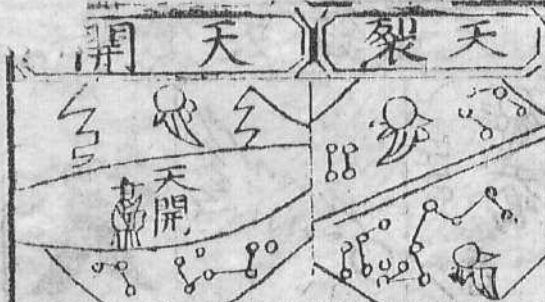 天裂
天開
天開